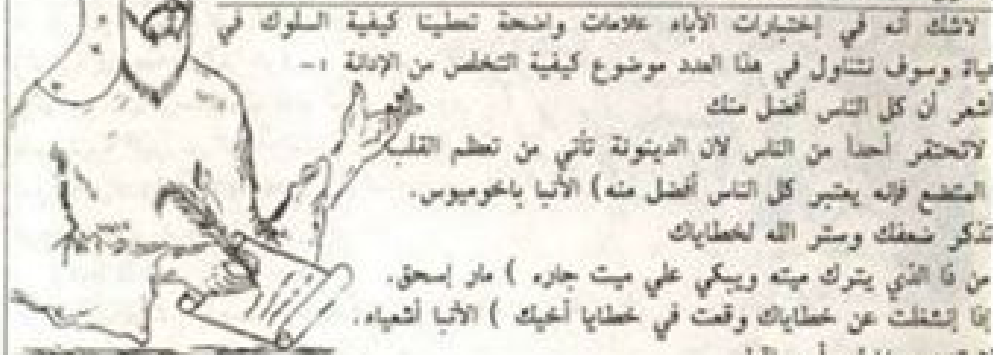 لاشك أنه في إختبارات الأباء علامات واضحة تعطينا كيفية السلوك في
حياة وسوف نتناول في هذا العدد موضوع كيفية التخلص من الإدانة :-
أشعر أن كل الناس أفضل منك
لاتحتقر أحداً من الناس لان الدينونة تأتي من تعظم القلب
المتضع فإنه يعتبر كل الناس أفضل منه) الأنبا باخوميوس.
تذكر ضعفك وستر الله لخطاياك
من ذا الذي يترك ميته ويبكي علي ميت جاره ) مار إسحق.
إذا إنشغلت عن خطاياك وقعت في خطايا أخيك ) الأنبا أشعياء.